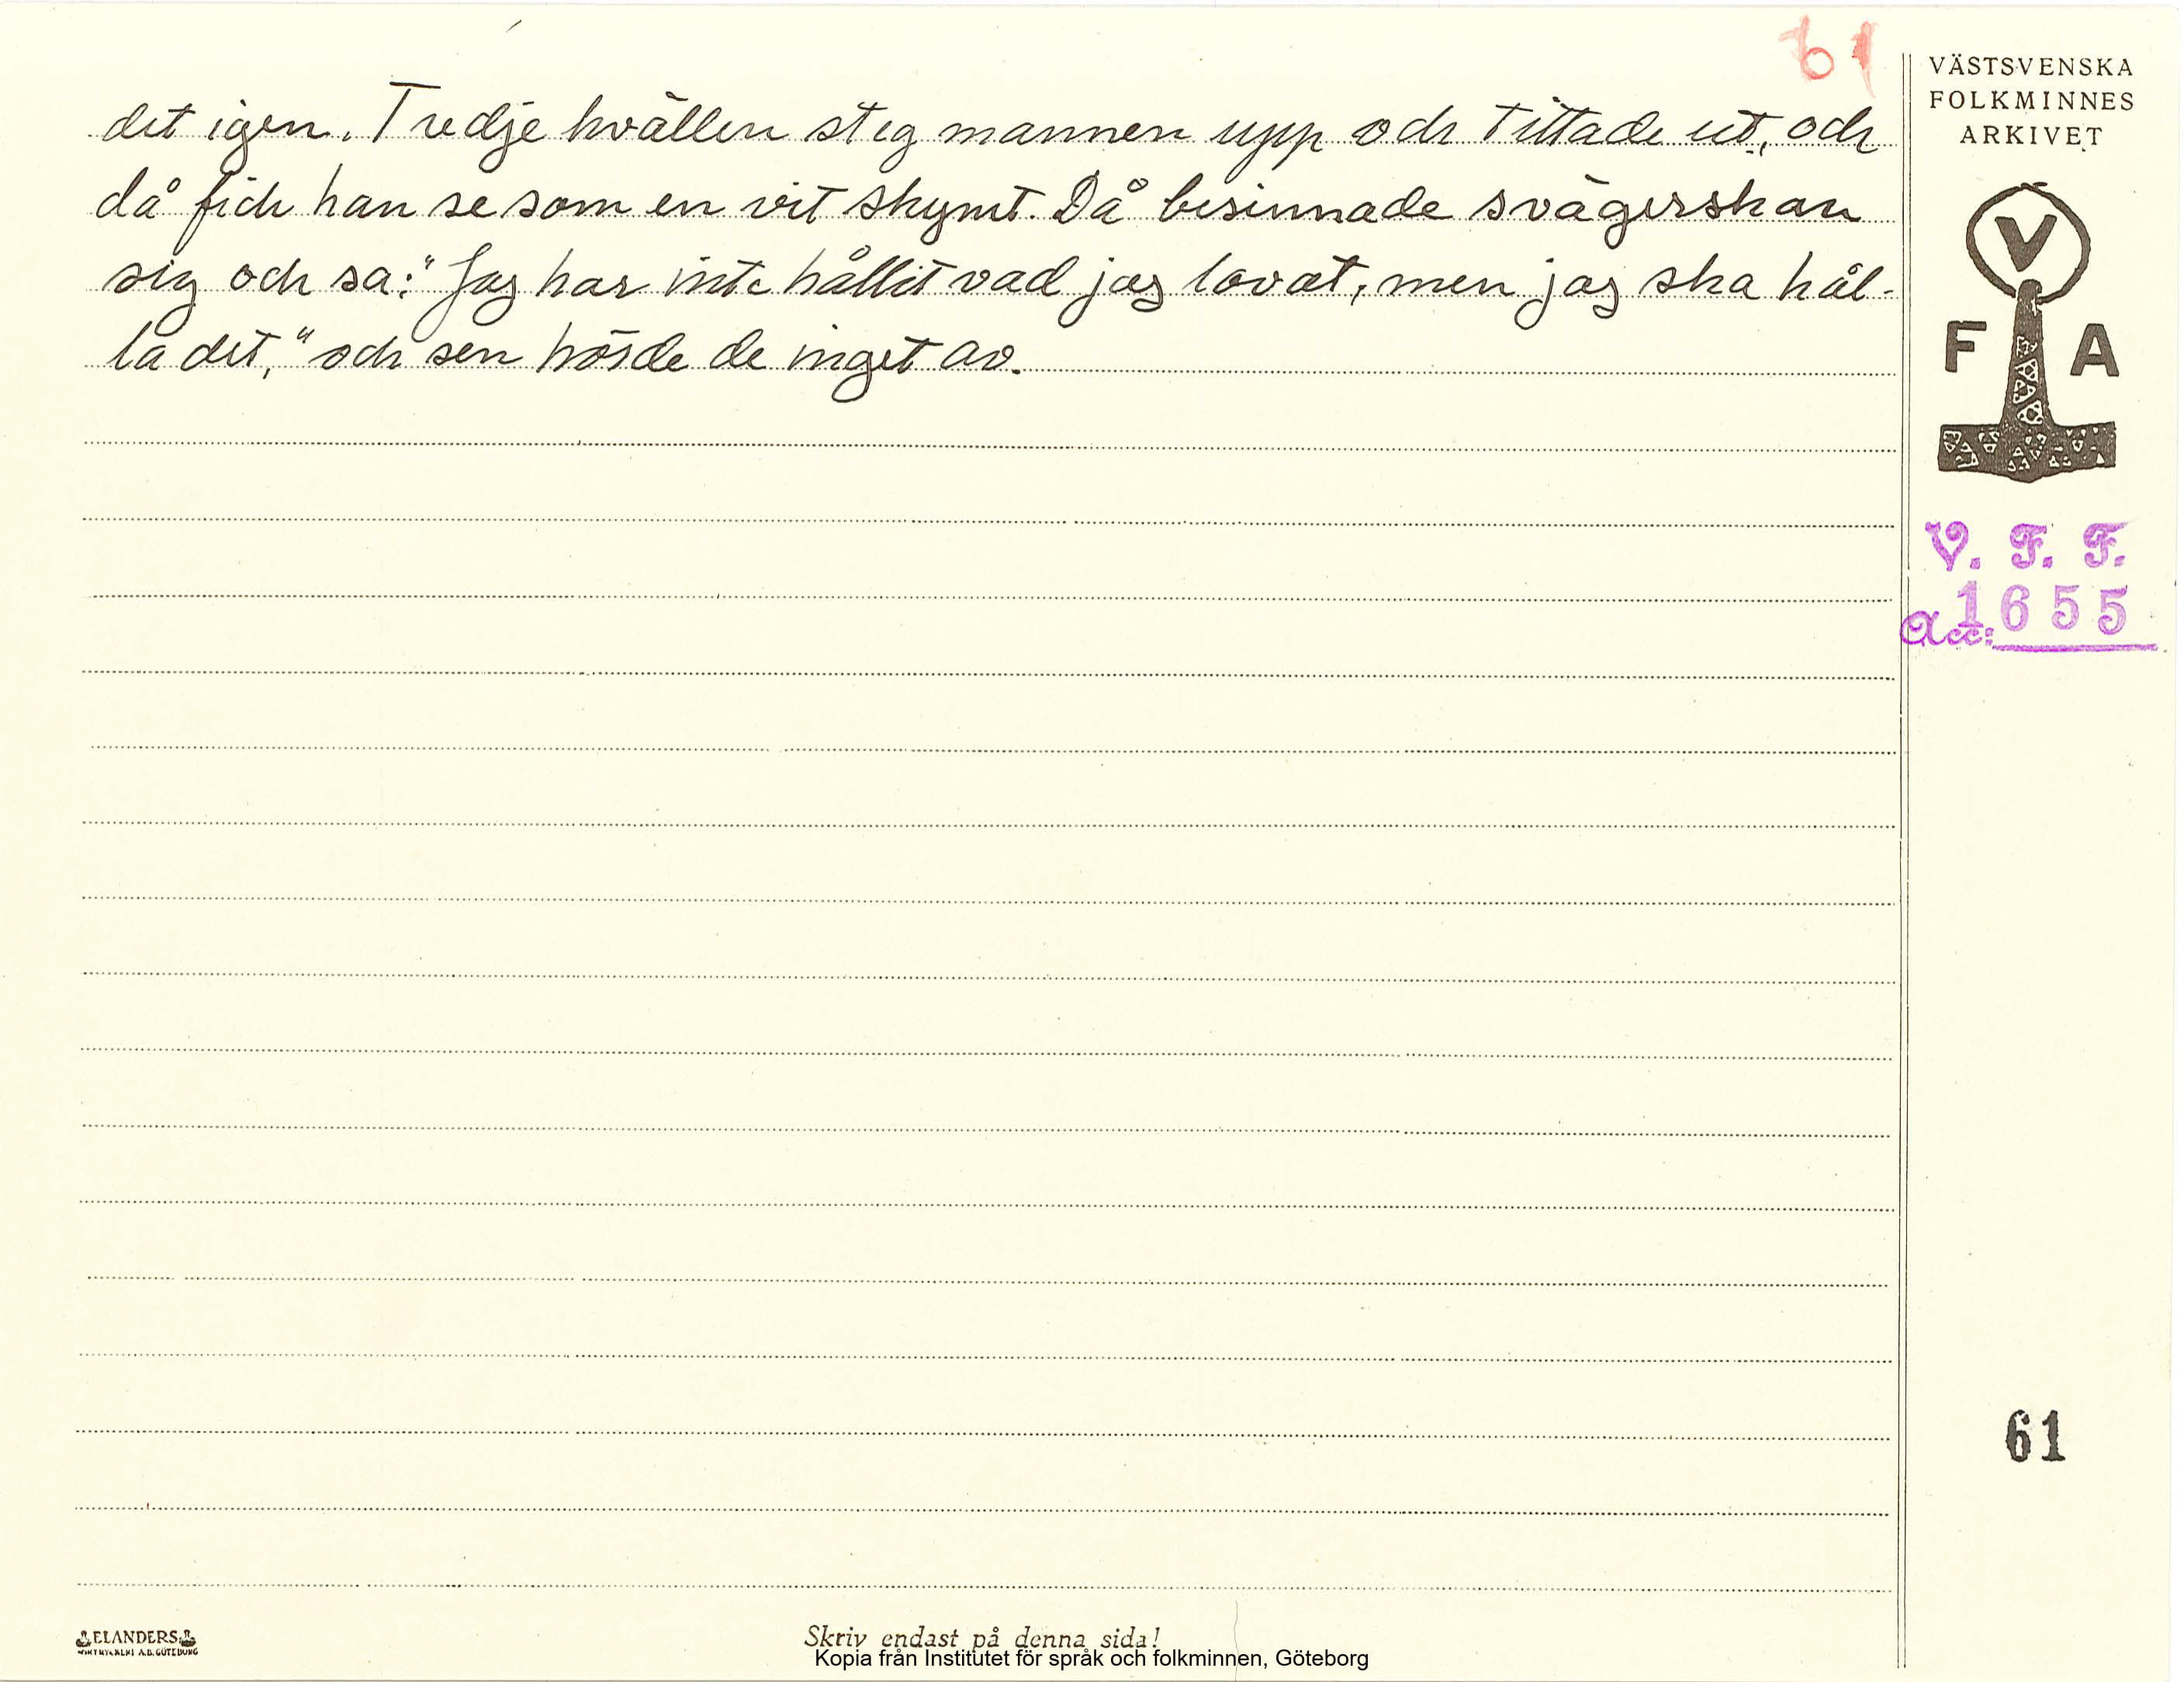 61
det igen. Tredje kvällen steg mannen upp och tittade ut, och
då fick han se som en vit skymt. Då besinnade svägerskan
sig och sa: "Jag har inte hållit vad jag lovat, men jag ska hål-
la det," och sen hörde de inget av.
VÄSTSVENSKA
FOLKMINNES
ARKIVET
V
F A
V. F. F.
Acc: 1655
61
ELANDERS
A.B. GÖTEBORG
Skriv endast på denna sida!
Kopia från Institutet för språk och folkminnen, Göteborg